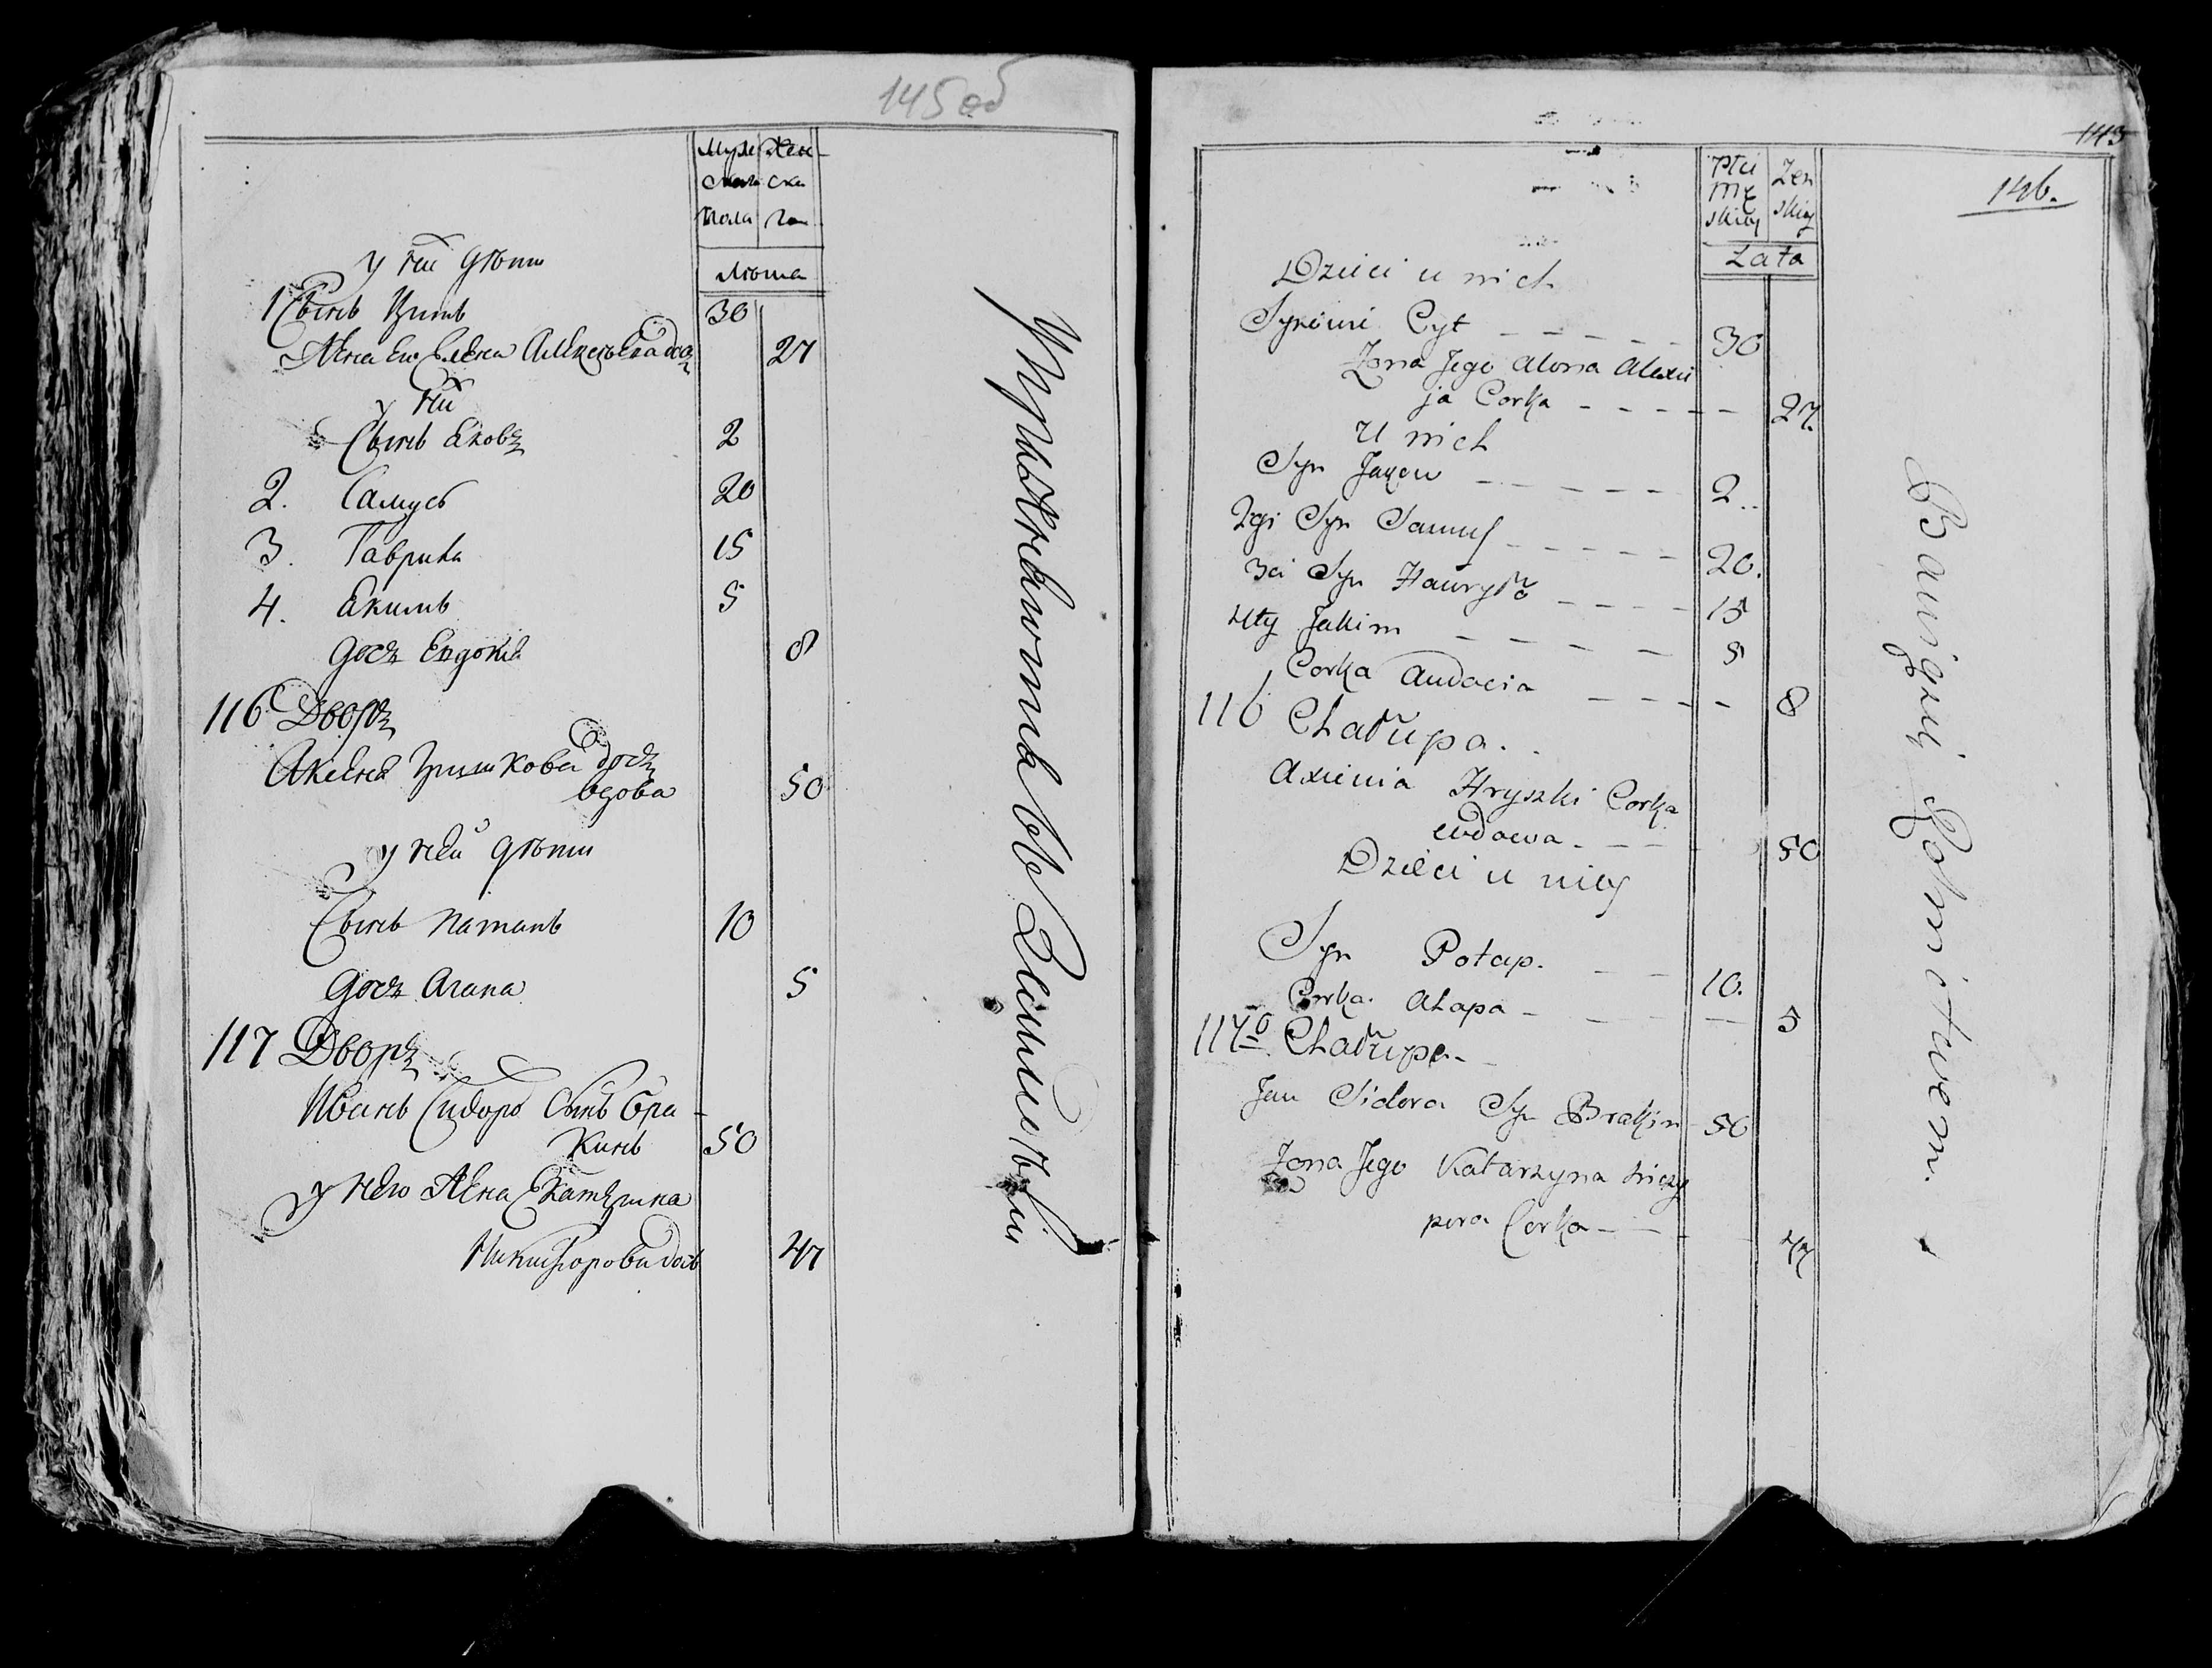 145 об
Муже Жен-
скаго ска
Пола го
Лѣта
у ни дѣти
1 Сынъ Цитъ 30
Жена ево Елена Алексѣева доч 27
у ни
Сынъ Яковъ 2
2. Самусь 20
3. Гаврила 15
4. Якимъ 5
доч Евдокия 8
116 Дворъ
Аксеня Гришкова дочь
вдова 50
у ней дѣти
Сынъ Патапъ 10
дочь Агапа 5
117 Дворъ
Иванъ Сидоро Сынъ Бра-
кинъ 50
у него Жена Катерина
Никифорова доч 47
Упражняются въ Землѣделіи
143
146.
Płci
Mę
skiey
Zen
skiey
Lata
Dzieci u nich
Synowi Cyt 30
Zona Jego Alona Alexie
ja Corka 27.
U nich
Syn Jakow 2..
2gi Syn Samuś 20.
3ci Syn Hawryło 15
4ty Jakim 5
Corka Audocia 8
116 Chałupa.
Axienia Hryszki Corka
wdowa 50
Dzieci u niey
Syn Potap. 10.
Corka. Ahapa 5
117o Chałupa
Jan Sidora Syn Brakin 50
Zona Jego Katarzyna Niczy
pora Corka 47
Bawiący Rolnictwem.